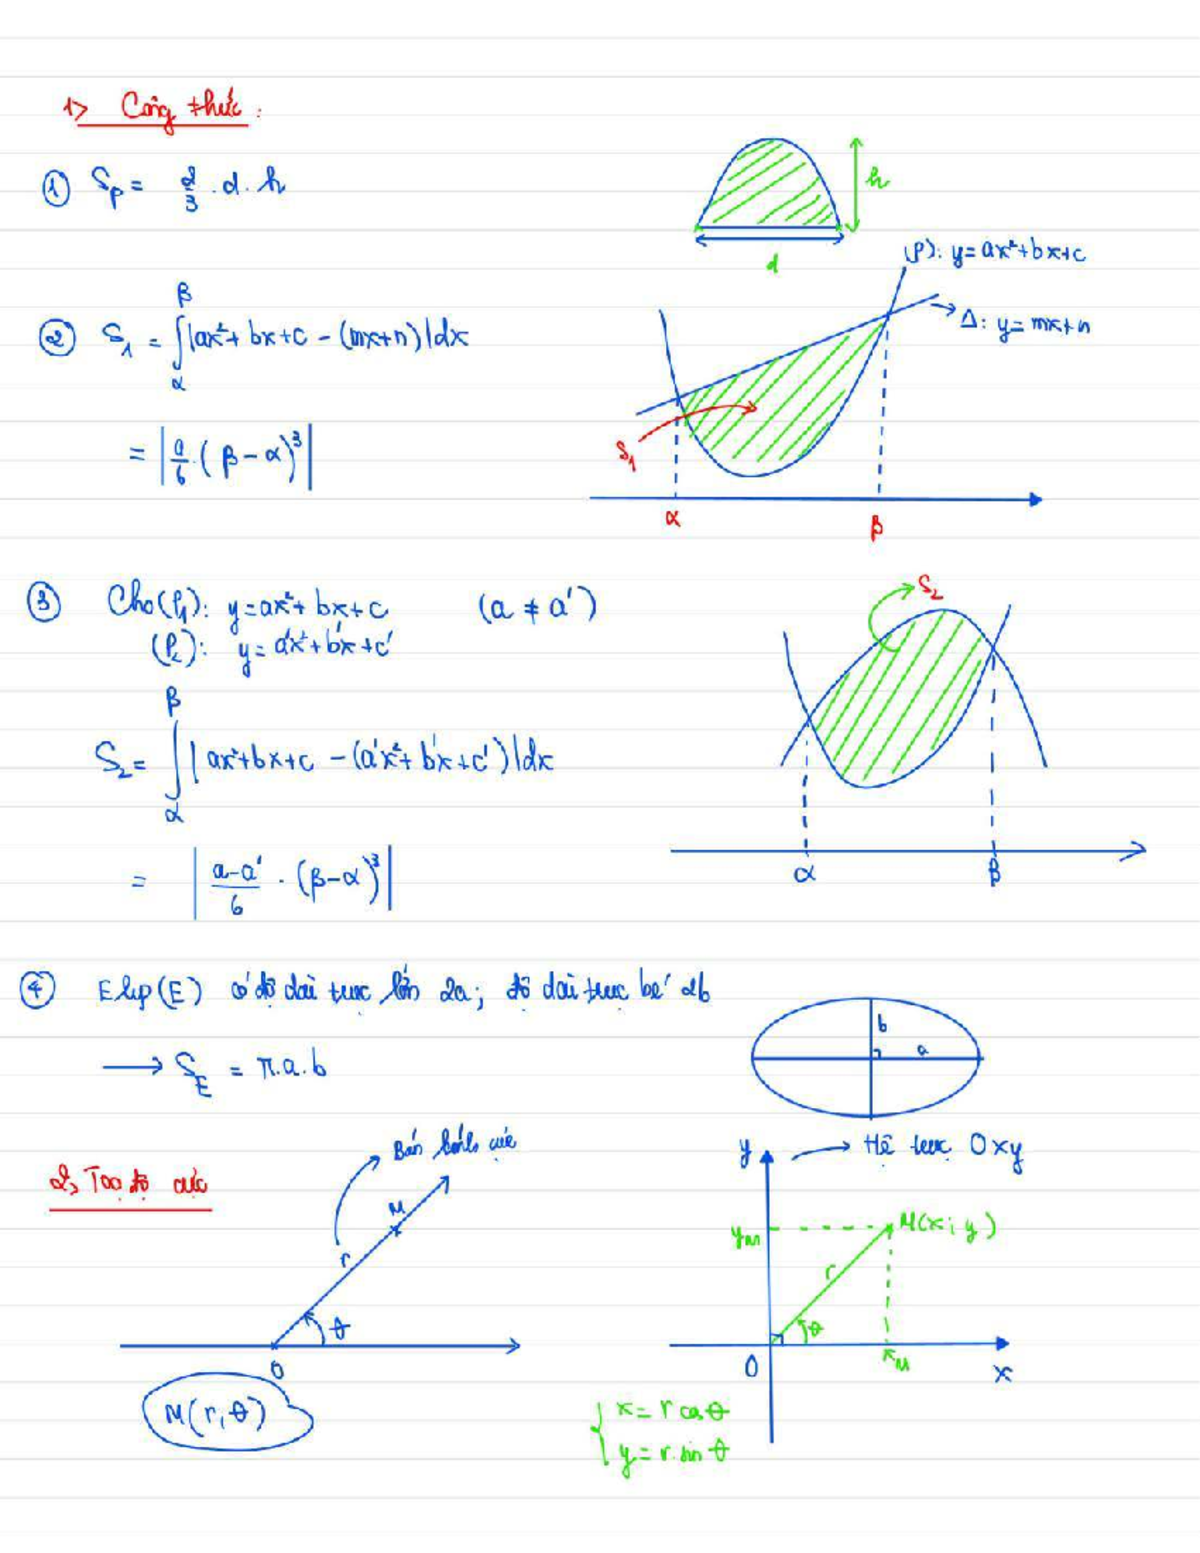 1> Công thức:
① Sp = 2/3 . d . h
h
d
(P): y = ax²+bx+c
Δ: y = mx+n
② S₁ = ∫_α^β |ax²+bx+c - (mx+n)|dx
= |a/6 . (β-α)³|
S₁
α β
③ Cho (P₁): y = ax²+bx+c (a ≠ a')
(P₂): y = a'x²+b'x+c'
S₂
S₂ = ∫_α^β |ax²+bx+c - (a'x²+b'x+c')|dx
= |(a-a')/6 . (β-α)³|
α β
④ Elip (E) có độ dài trục lớn 2a; độ dài trục bé 2b
→ S_E = π.a.b
b
a
2, Toạ độ cực
Bán kính cực
M
r
θ
O
M(r,θ)
y
→ Hệ trục Oxy
y_M
M(x; y)
r
θ
O
x_M
x
{ x = r cos θ
y = r. sin θ